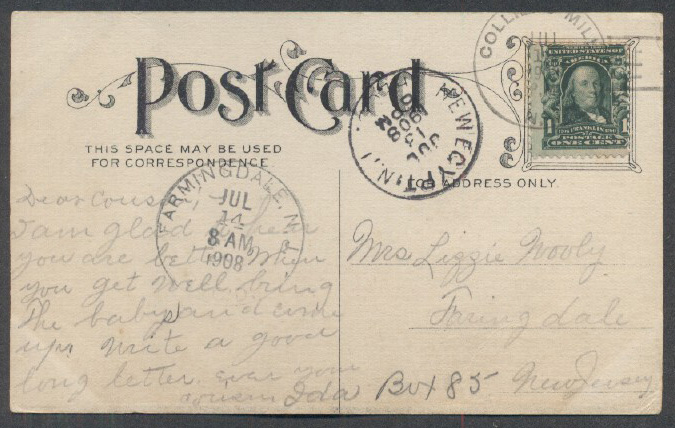 Post Card
THIS SPACE MAY BE USED
FOR CORRESPONDENCE.
FOR ADDRESS ONLY.
COLLIE MIL
JUL
NEW EGYPT, N.J.
JUL
13
8 M
1908
FARMINGDALE, N.J.
JUL
14
8 AM
1908
SERIES 1902
UNITED STATES OF
AMERICA
FRANKLIN
POSTAGE
ONE CENT
Dear Cousin,
I am glad to hear
you are better, When
you get well bring
the baby and come
up. Write a good
long letter. ever your
cousin Ida
Mrs Lizzie Wooly
Faringdale
Box 85 New Jersey